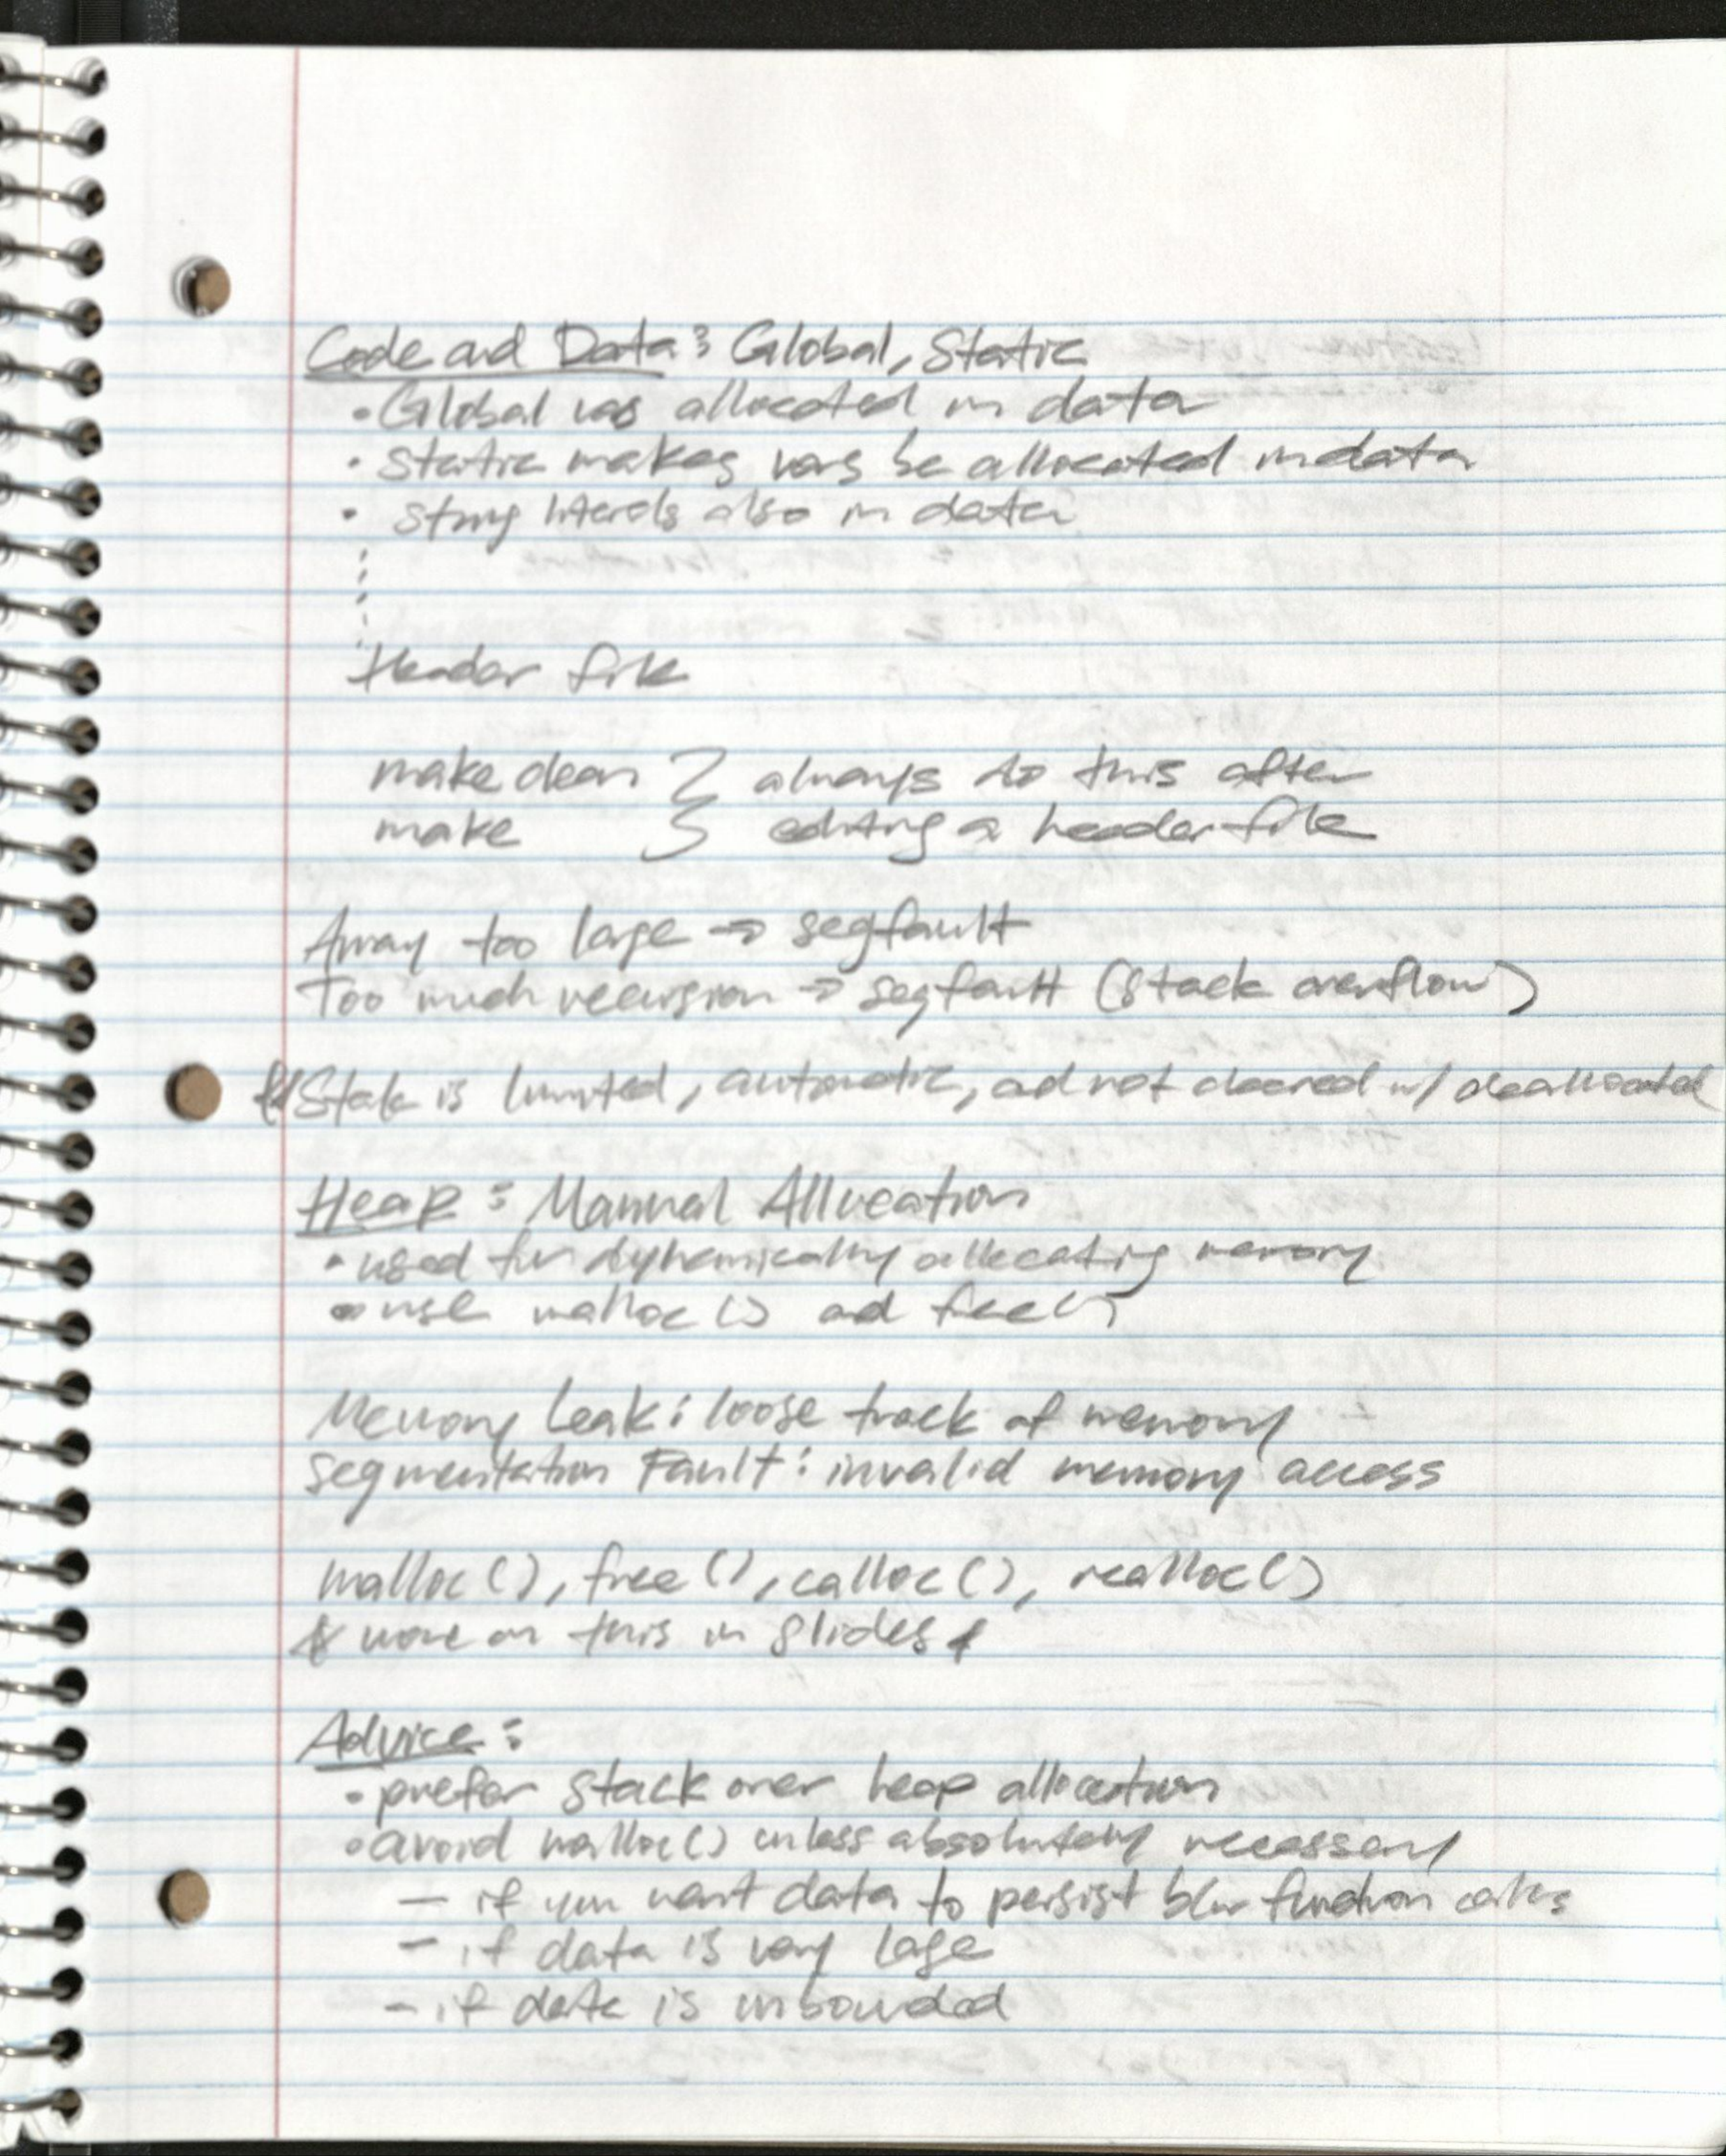 Code and Data: Global, Static
• Global vars allocated in data
• static makes vars be allocated in data
• string literals also in data
Header file
make clean } always do this after
make } editing a header file
Array too large → segfault
Too much recursion → segfault (stack overflow)
Stack is limited, automatic, and not cleared w/ deallocated
Heap: Manual Allocation
• used for dynamically allocating memory
• use malloc() and free()
Memory Leak: loose track of memory
Segmentation Fault: invalid memory access
malloc(), free(), calloc(), realloc()
* more on this in slides *
Advice:
• prefer stack over heap allocation
• avoid malloc() unless absolutely necessary
— if you want data to persist btw function calls
- if data is very large
- if data is unbounded